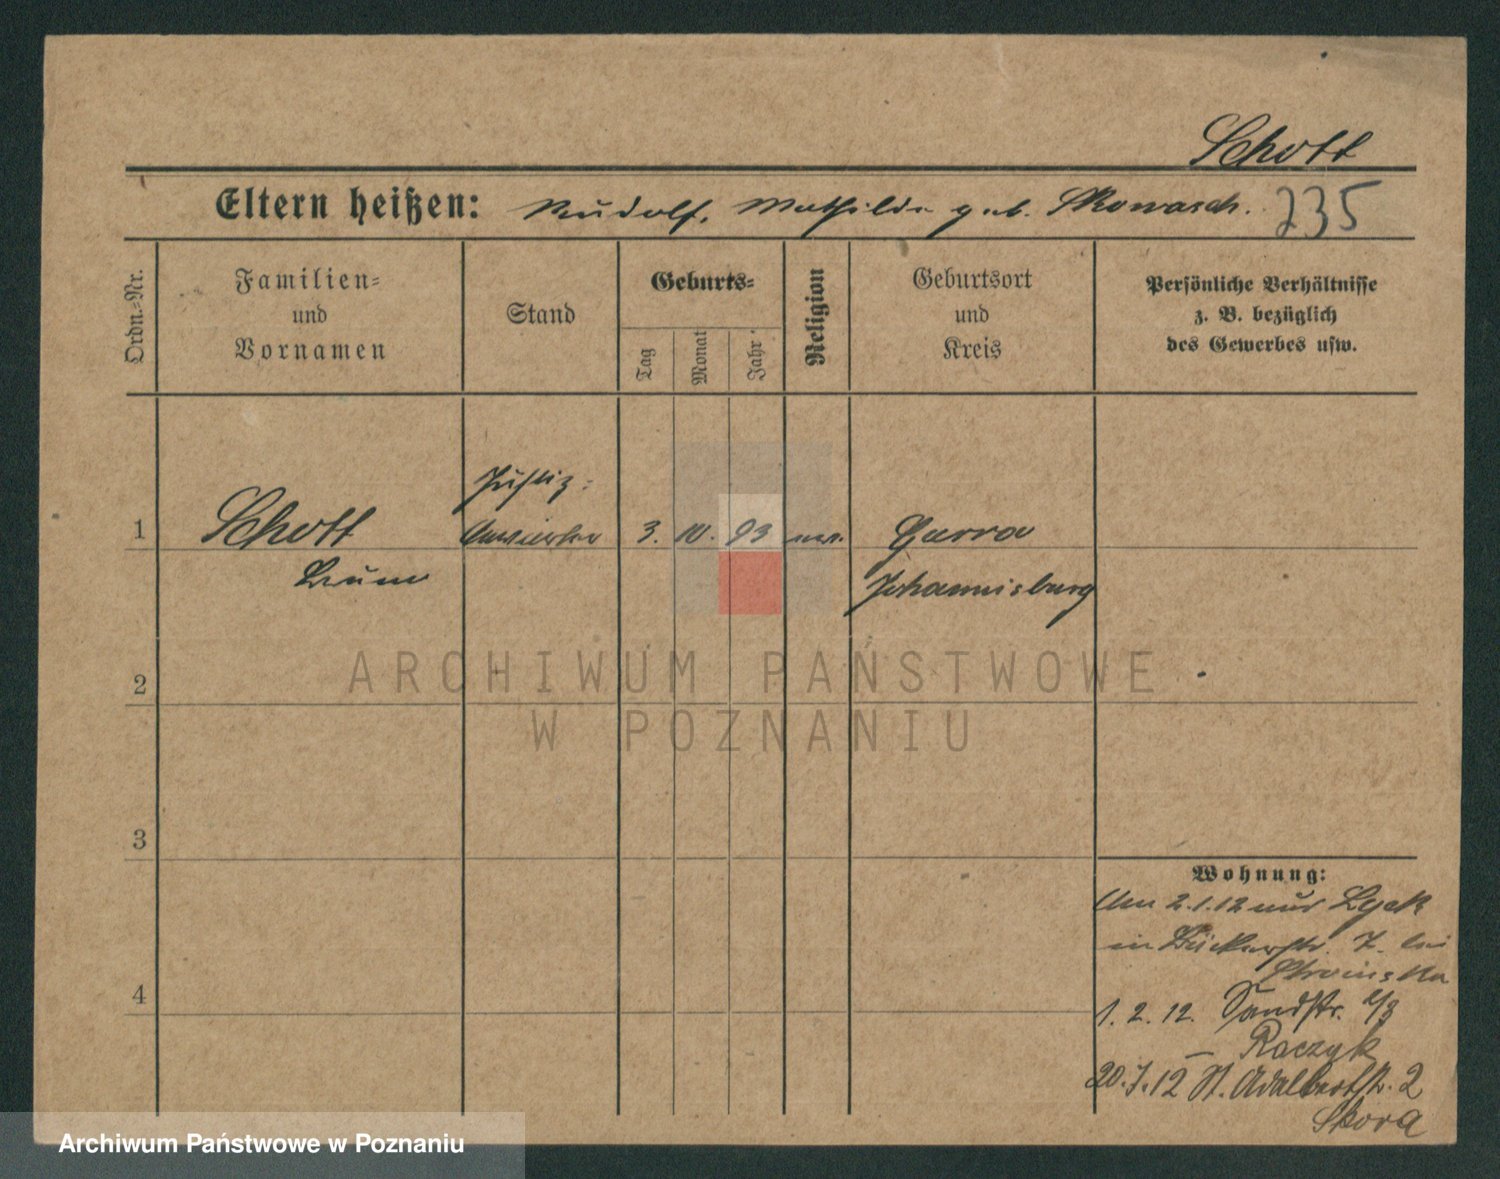 Schott
Eltern heißen: Rudolf, Mathilde geb. Skowasch. 235
Ordn.-Nr.
Familien-
und
Vornamen
Stand
Geburts-
Tag
Monat
Jahr
Religion
Geburtsort
und
Kreis
Persönliche Verhältnisse
z. B. bezüglich
des Gewerbes usw.
Justiz-
1 Schott 3. 10. 93 Gurra
Johannisburg
2
ARCHIWUM PAŃSTWOWE
W POZNANIU
3
Wohnung:
Am 2.1.12 aus Lyck
in 7. bei
4
1. 2. 12. Sandstr. 2/3
Raczyk
20.7.12 St. Adalbertstr. 2
Skora
Archiwum Państwowe w Poznaniu